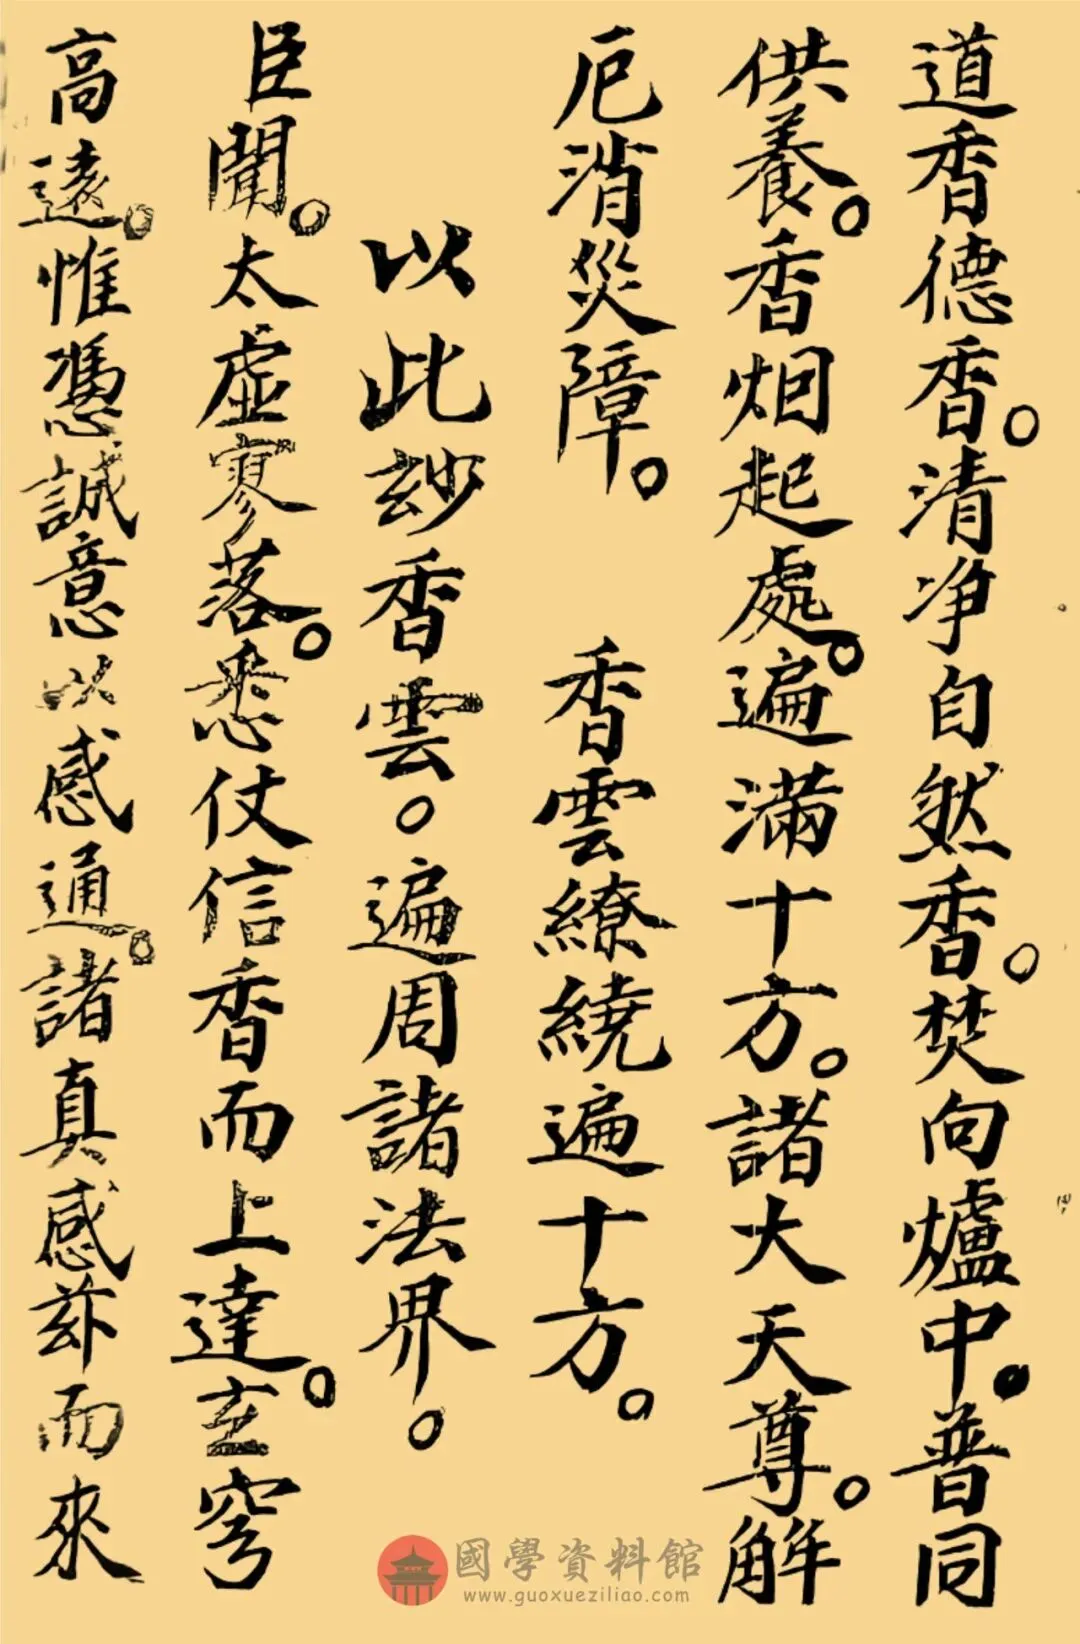 道香德香。清净自然香。焚向爐中。普同
供養。香烟起處。遍滿十方。諸大天尊。解
厄消災障。 香雲繚繞遍十方。
以此玅香雲。遍周諸法界。
臣聞。太虛寥落。悉仗信香而上達。玄穹
高遠。惟憑誠意以感通。諸真感茲而來
國學資料館
www.guoxueziliao.com